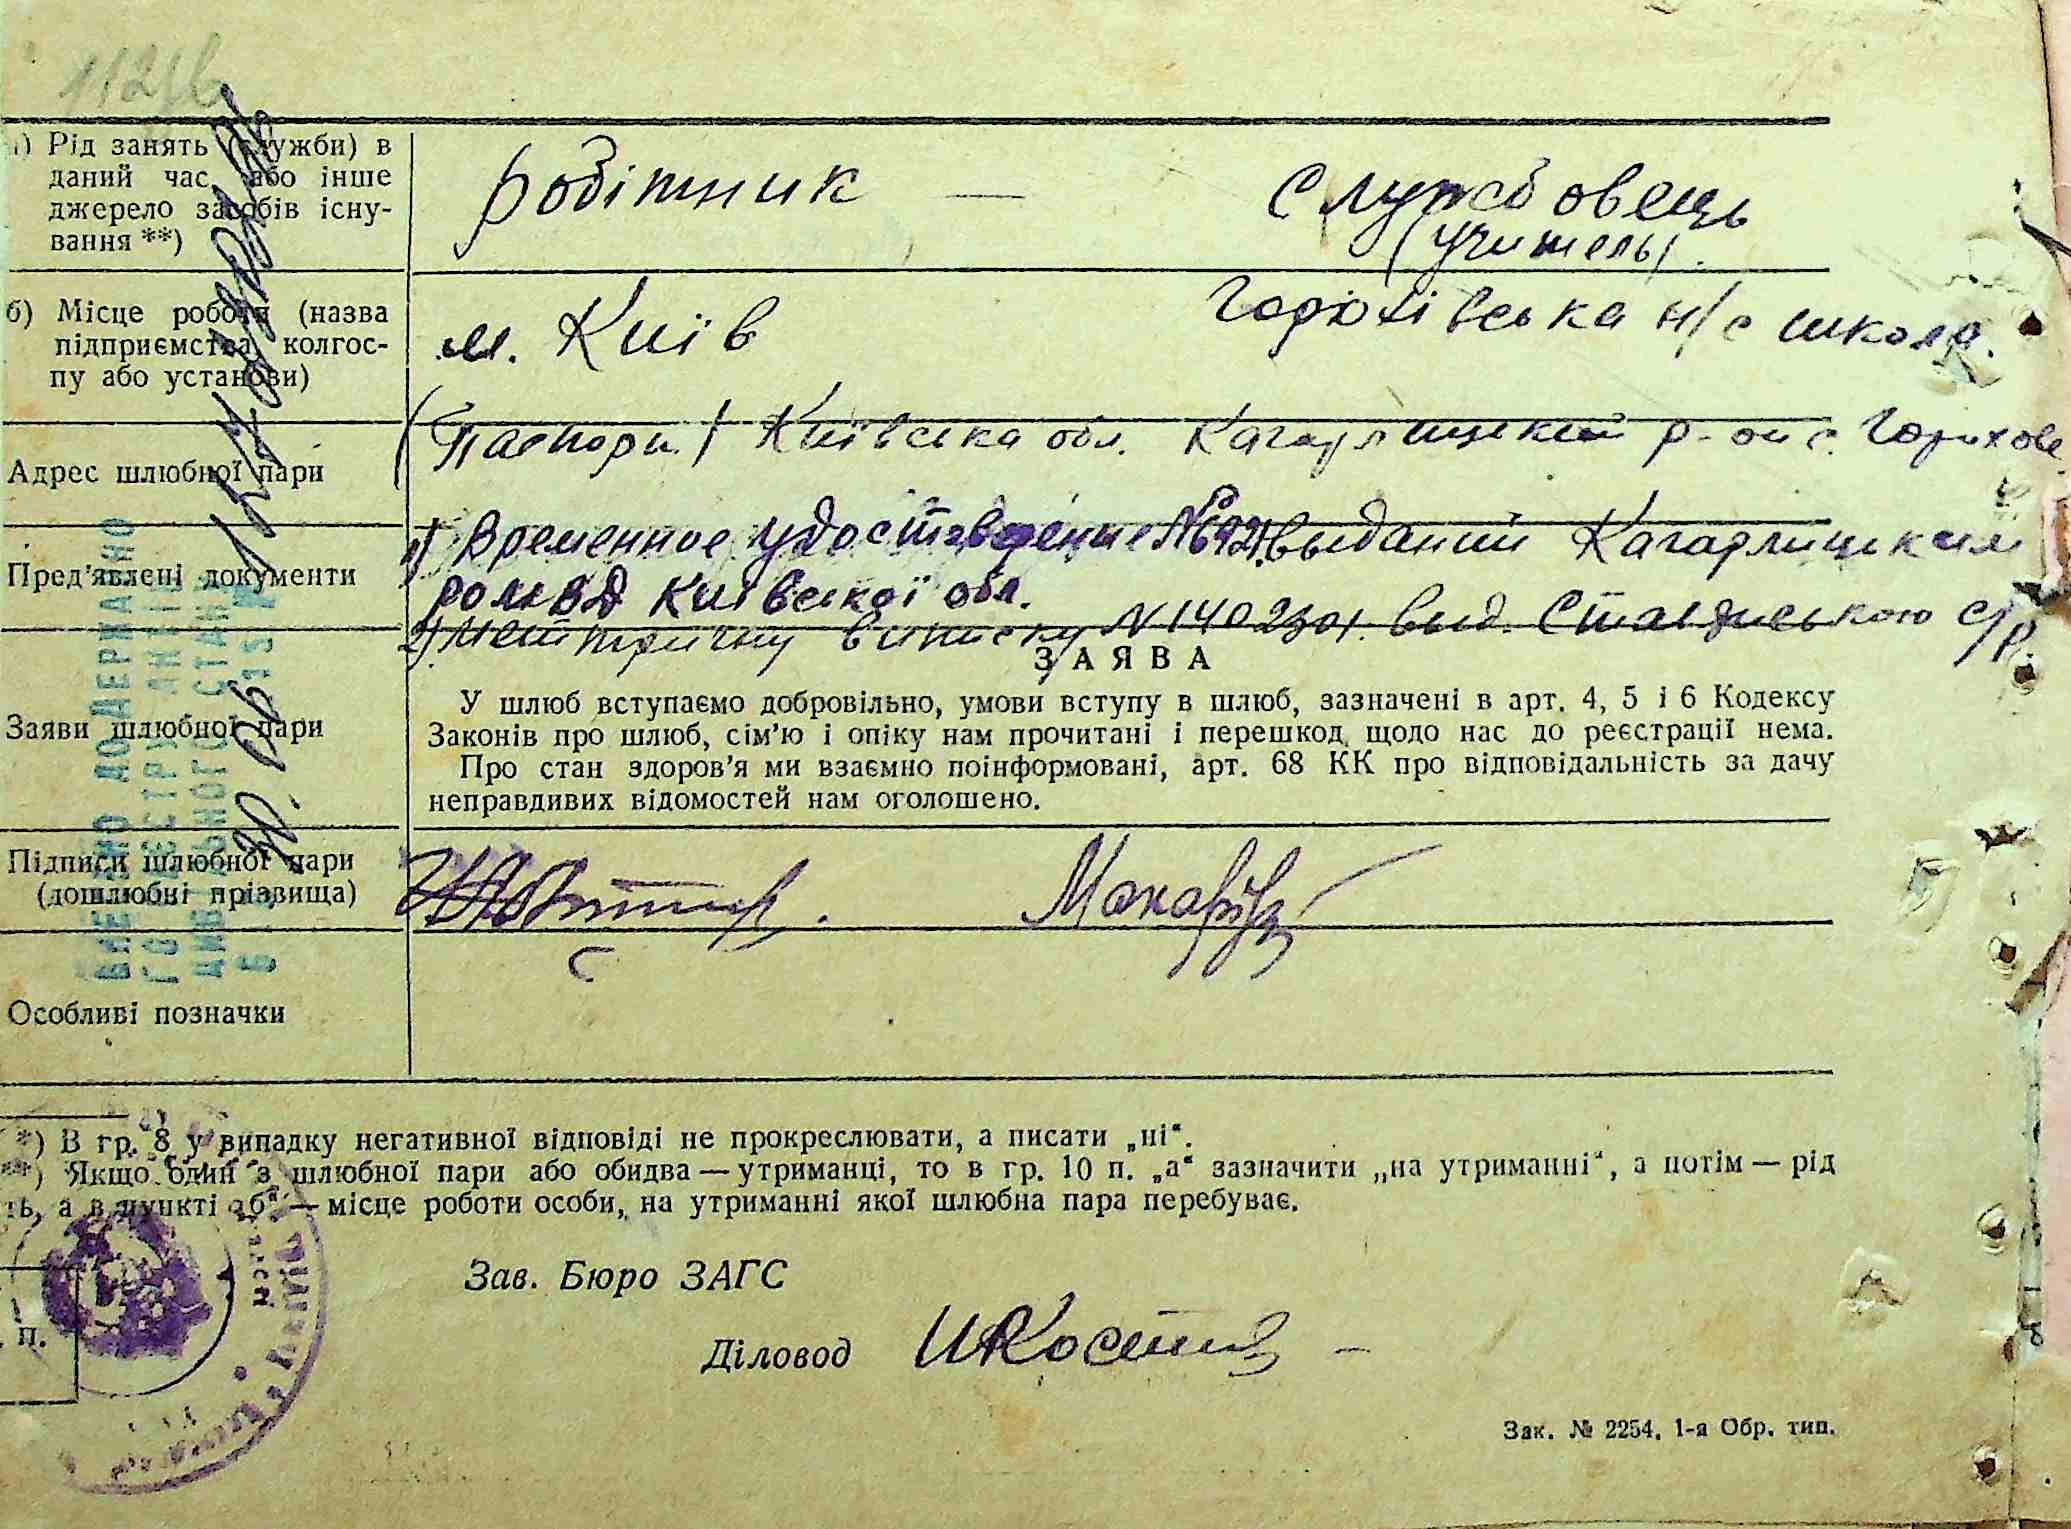 а) Рід занять (служби) в
даний час або інше
джерело засобів існу-
вання **)
робітник —
Службовець
(учитель).
б) Місце роботи (назва
підприємства, колгос-
пу або установи)
м. Київ
н/с школа.
Адрес шлюбної пари
(Паспорт) Київська обл. Кагарлицький р-он с.
Пред'явлені документи
1) Временное удостоверение № выданий Кагарлицьким
РОМВД Київської обл.
2) Метричну виписку N вид. с/р.
ЗАЯВА
Заяви шлюбної пари
У шлюб вступаємо добровільно, умови вступу в шлюб, зазначені в арт. 4, 5 і 6 Кодексу
Законів про шлюб, сім'ю і опіку нам прочитані і перешкод щодо нас до реєстрації нема.
Про стан здоров'я ми взаємно поінформовані, арт. 68 КК про відповідальність за дачу
неправдивих відомостей нам оголошено.
Підписи шлюбної пари
(дошлюбні прізвища)
Особливі позначки
*) В гр. 8 у випадку негативної відповіді не прокреслювати, а писати „ні“.
**) Якщо один з шлюбної пари або обидва — утриманці, то в гр. 10 п. „а“ зазначити „на утриманні“, а потім — рід
ть, а в пункті „б“ — місце роботи особи, на утриманні якої шлюбна пара перебуває.
Зав. Бюро ЗАГС
п.
Діловод
Зак. № 2254. 1-я Обр. тип.